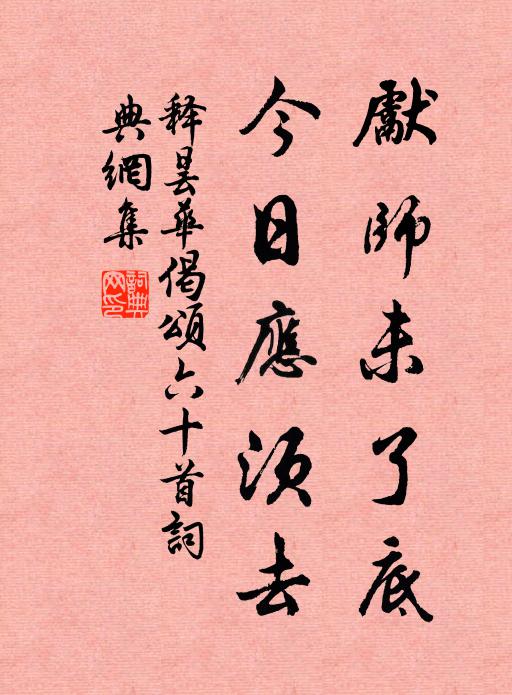 獻師未了底
今日應須去
释昙華偈頌六十首詞
典網集
詞典
网印